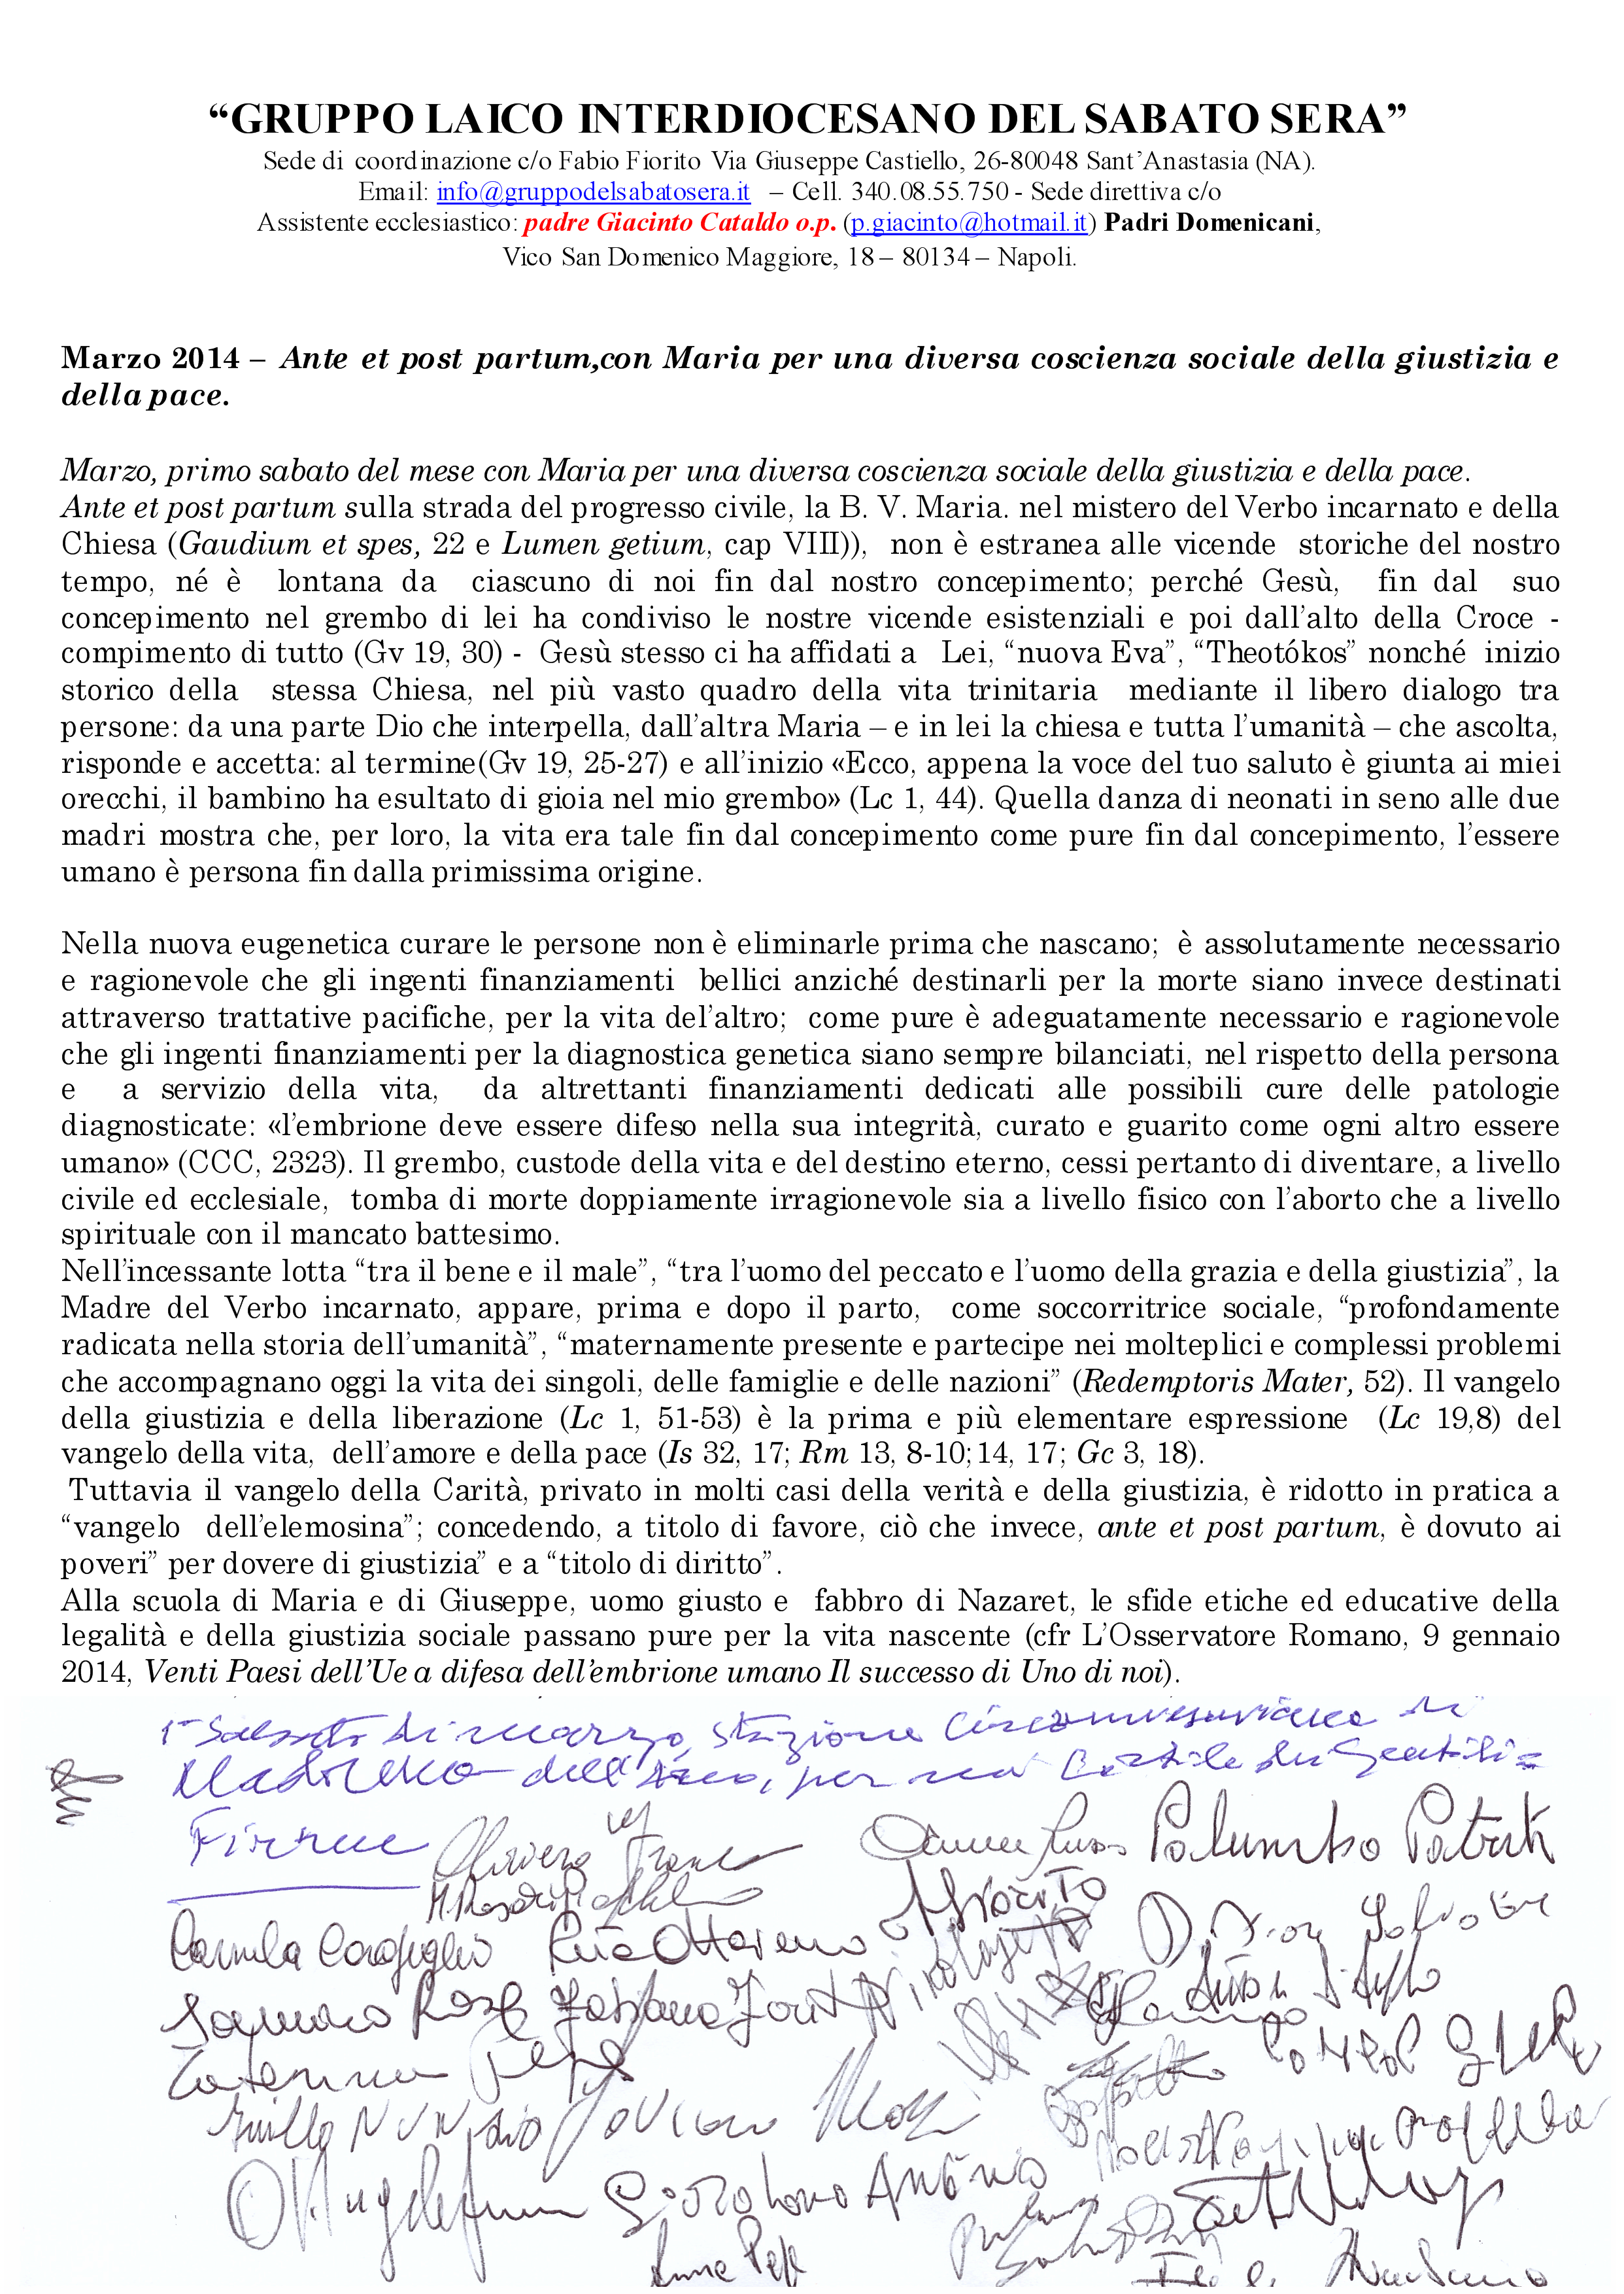 “GRUPPO LAICO INTERDIOCESANO DEL SABATO SERA”
Sede di coordinazione c/o Fabio Fiorito Via Giuseppe Castiello, 26-80048 Sant’Anastasia (NA).
Email: info@gruppodelsabatosera.it – Cell. 340.08.55.750 - Sede direttiva c/o
Assistente ecclesiastico: padre Giacinto Cataldo o.p. (p.giacinto@hotmail.it) Padri Domenicani,
Vico San Domenico Maggiore, 18 – 80134 – Napoli.
Marzo 2014 – Ante et post partum,con Maria per una diversa coscienza sociale della giustizia e
della pace.
Marzo, primo sabato del mese con Maria per una diversa coscienza sociale della giustizia e della pace.
Ante et post partum sulla strada del progresso civile, la B. V. Maria. nel mistero del Verbo incarnato e della
Chiesa (Gaudium et spes, 22 e Lumen getium, cap VIII)), non è estranea alle vicende storiche del nostro
tempo, né è lontana da ciascuno di noi fin dal nostro concepimento; perché Gesù, fin dal suo
concepimento nel grembo di lei ha condiviso le nostre vicende esistenziali e poi dall’alto della Croce -
compimento di tutto (Gv 19, 30) - Gesù stesso ci ha affidati a Lei, “nuova Eva”, “Theotókos” nonché inizio
storico della stessa Chiesa, nel più vasto quadro della vita trinitaria mediante il libero dialogo tra
persone: da una parte Dio che interpella, dall’altra Maria – e in lei la chiesa e tutta l’umanità – che ascolta,
risponde e accetta: al termine(Gv 19, 25-27) e all’inizio «Ecco, appena la voce del tuo saluto è giunta ai miei
orecchi, il bambino ha esultato di gioia nel mio grembo» (Lc 1, 44). Quella danza di neonati in seno alle due
madri mostra che, per loro, la vita era tale fin dal concepimento come pure fin dal concepimento, l’essere
umano è persona fin dalla primissima origine.
Nella nuova eugenetica curare le persone non è eliminarle prima che nascano; è assolutamente necessario
e ragionevole che gli ingenti finanziamenti bellici anziché destinarli per la morte siano invece destinati
attraverso trattative pacifiche, per la vita del’altro; come pure è adeguatamente necessario e ragionevole
che gli ingenti finanziamenti per la diagnostica genetica siano sempre bilanciati, nel rispetto della persona
e a servizio della vita, da altrettanti finanziamenti dedicati alle possibili cure delle patologie
diagnosticate: «l’embrione deve essere difeso nella sua integrità, curato e guarito come ogni altro essere
umano» (CCC, 2323). Il grembo, custode della vita e del destino eterno, cessi pertanto di diventare, a livello
civile ed ecclesiale, tomba di morte doppiamente irragionevole sia a livello fisico con l’aborto che a livello
spirituale con il mancato battesimo.
Nell’incessante lotta “tra il bene e il male”, “tra l’uomo del peccato e l’uomo della grazia e della giustizia”, la
Madre del Verbo incarnato, appare, prima e dopo il parto, come soccorritrice sociale, “profondamente
radicata nella storia dell’umanità”, “maternamente presente e partecipe nei molteplici e complessi problemi
che accompagnano oggi la vita dei singoli, delle famiglie e delle nazioni” (Redemptoris Mater, 52). Il vangelo
della giustizia e della liberazione (Lc 1, 51-53) è la prima e più elementare espressione (Lc 19,8) del
vangelo della vita, dell’amore e della pace (Is 32, 17; Rm 13, 8-10;14, 17; Gc 3, 18).
Tuttavia il vangelo della Carità, privato in molti casi della verità e della giustizia, è ridotto in pratica a
“vangelo dell’elemosina”; concedendo, a titolo di favore, ciò che invece, ante et post partum, è dovuto ai
poveri” per dovere di giustizia” e a “titolo di diritto”.
Alla scuola di Maria e di Giuseppe, uomo giusto e fabbro di Nazaret, le sfide etiche ed educative della
legalità e della giustizia sociale passano pure per la vita nascente (cfr L’Osservatore Romano, 9 gennaio
2014, Venti Paesi dell’Ue a difesa dell’embrione umano Il successo di Uno di noi).
1° Sabato di marzo, stazione Circumvesuviana di
Madonna dell'Arco, per un Cortile dei Gentili =
Firme
Palumbo
Carmela
Fabiana
Caterina Pepe
Nunzio
Antonio
Anna Pepe